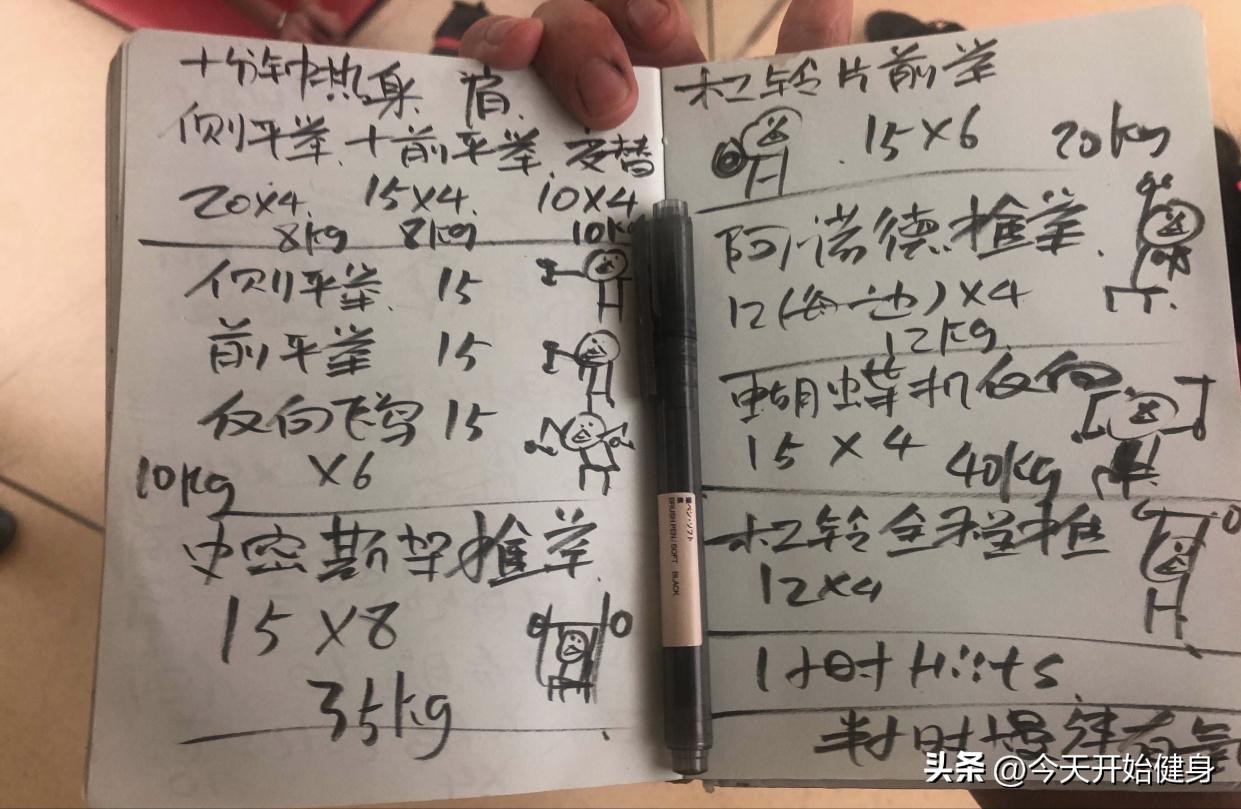 十分钟热身 肩.
侧平举、十前平举、交替
20X4. 15X4. 10X4
8kg 8kg 10kg
侧平举、 15
前平举 15
仅向飞鸟 15
10kg X6
史密斯架推举.
15 X8
35kg
杠铃片前举
15X6 20kg
阿诺德推举.
12(每一边)X4
12kg
蝴蝶机仅向
15 X 4 40kg
杠铃全程推
12X4
1小时Hiits.
半小时慢球有氧
BRUSH PEN / SOFT BLACK
头条 @今天开始健身